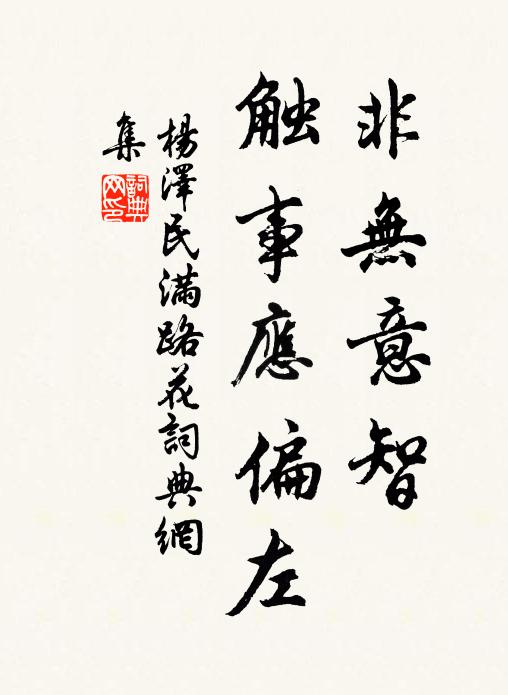 非無意智
触事應偏左
楊澤民滿路花詞典網
集
詞典网印